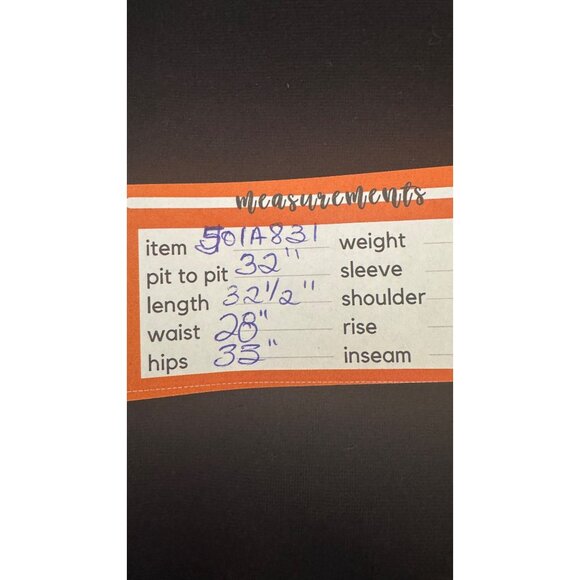 measurements
item 501A831 weight
pit to pit 32" sleeve
length 32 1/2" shoulder
waist 28" rise
hips 33" inseam